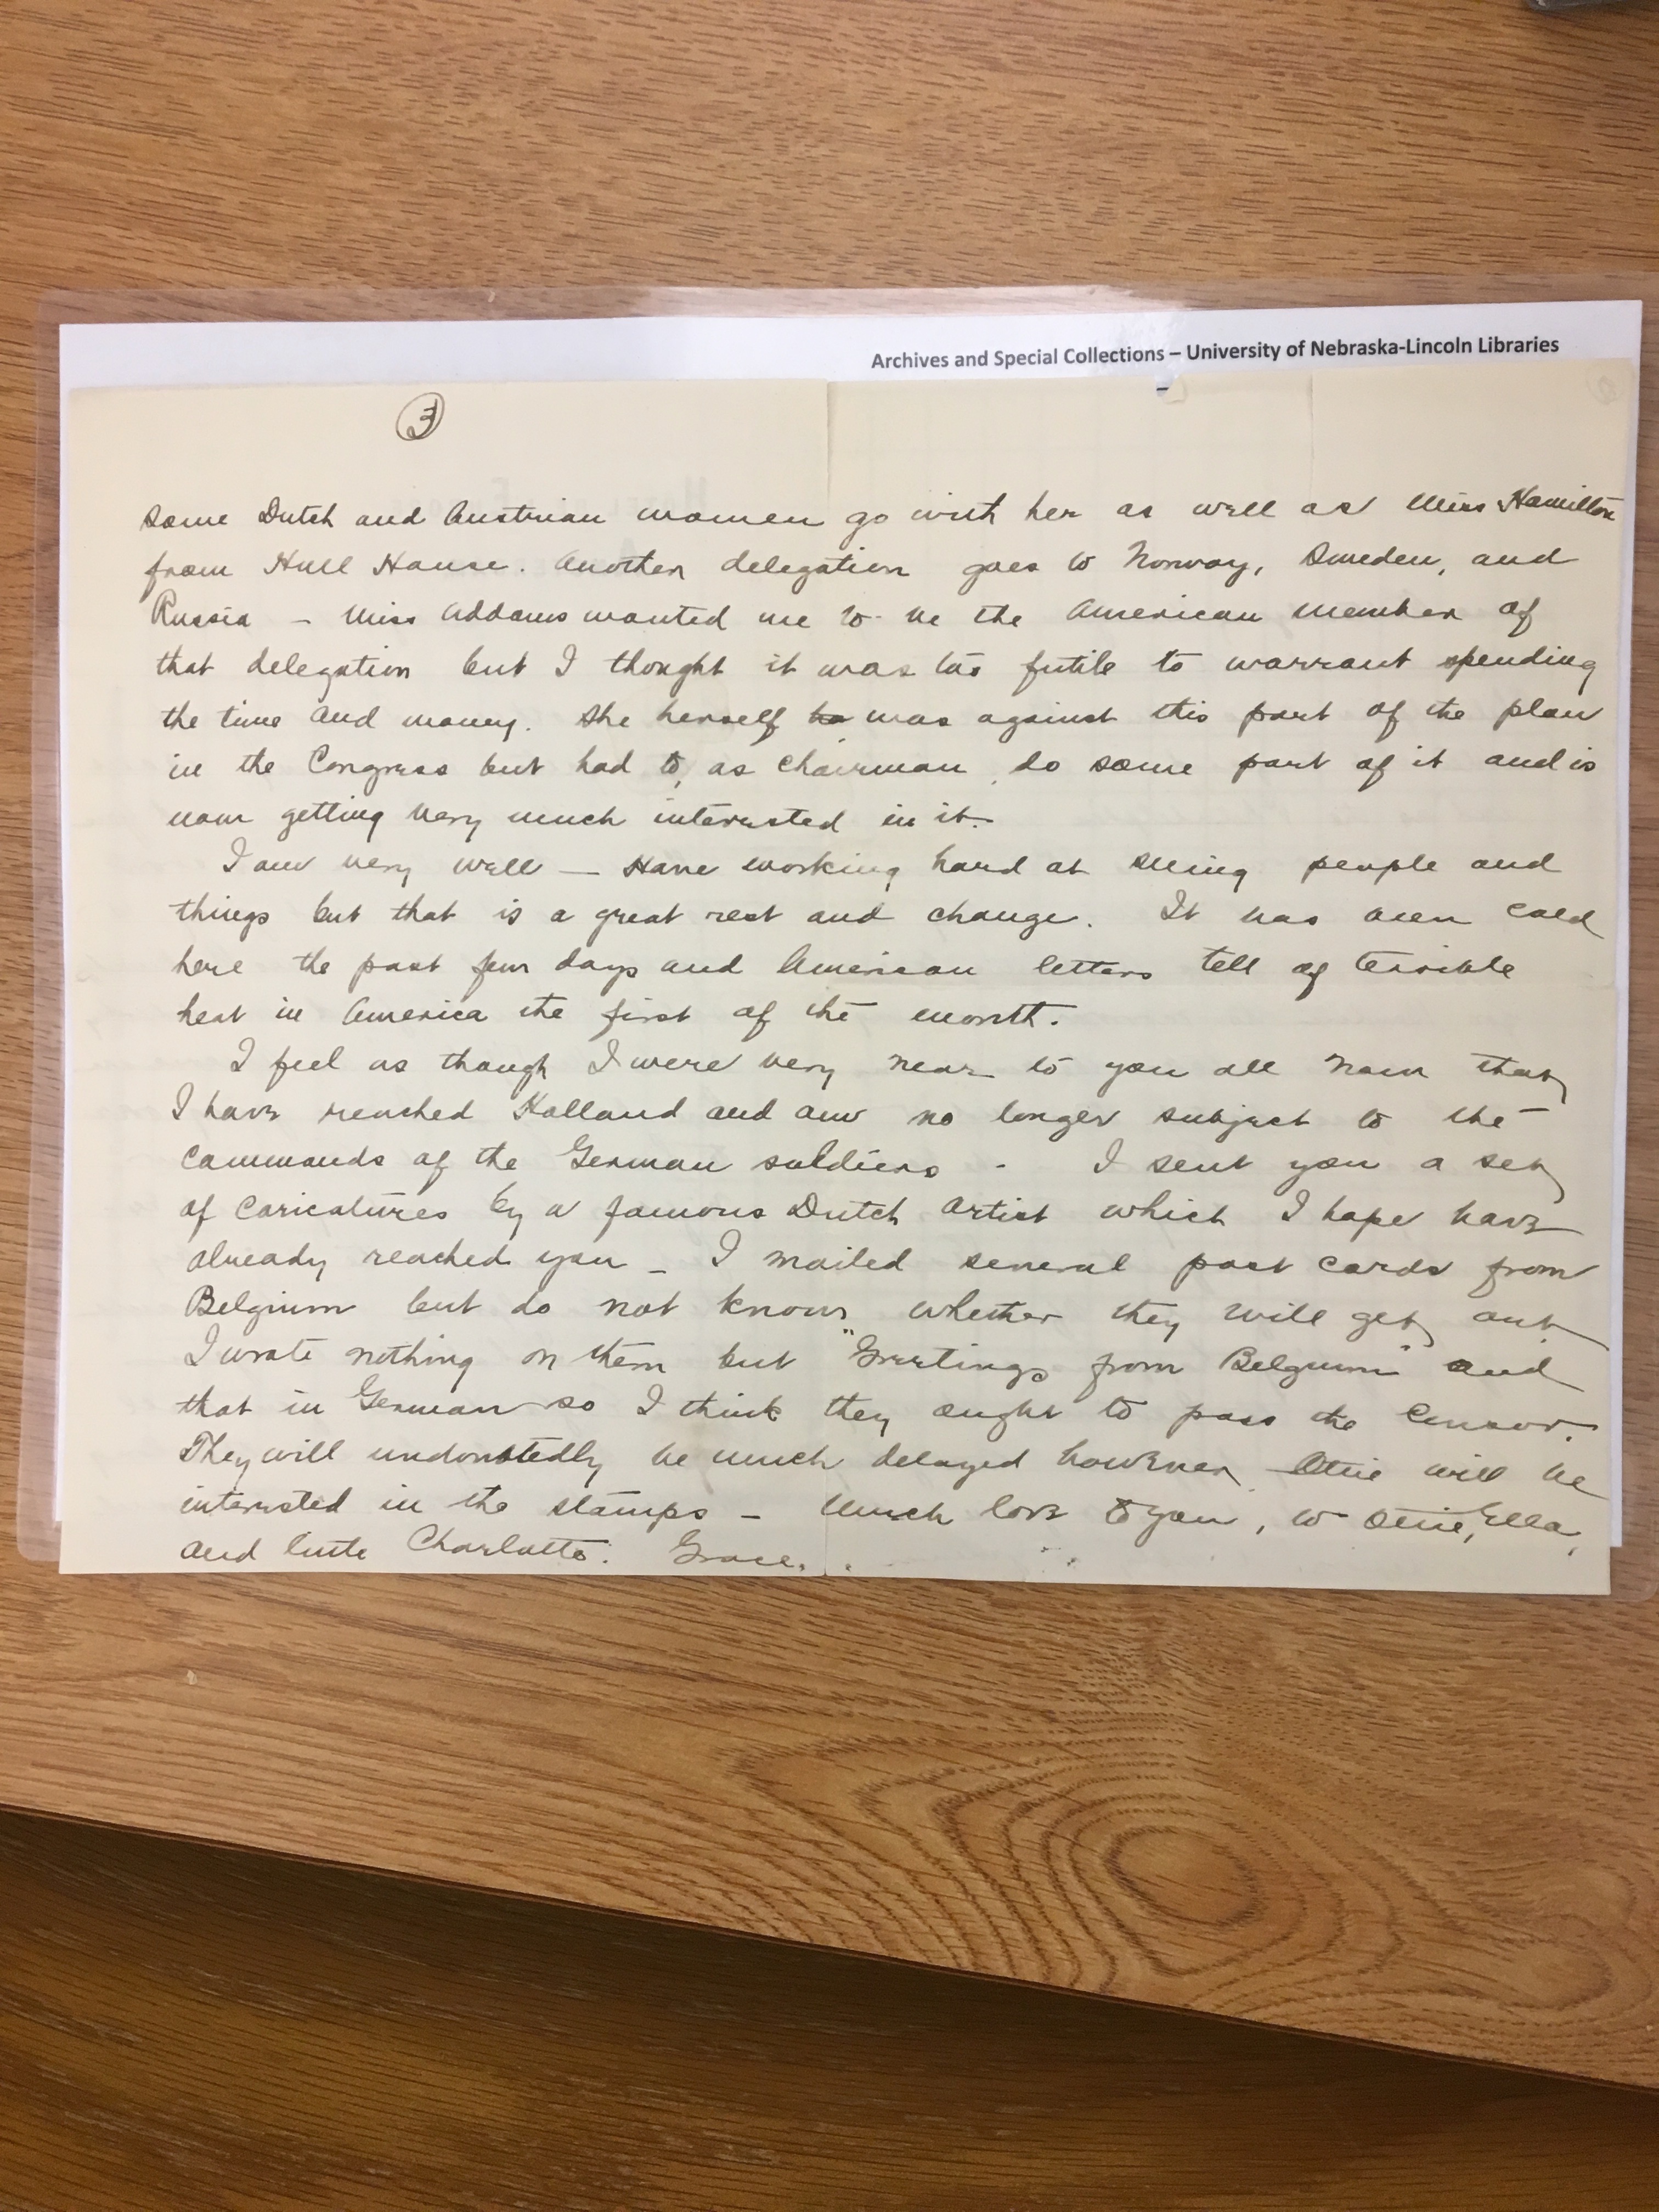 Archives and Special Collections – University of Nebraska-Lincoln Libraries
3
some Dutch and Austrian women go with her as well as Miss Hamilton
from Hull House. Another delegation goes to Norway, Sweden, and
Russia – Miss Addams wanted me to be the American member of
that delegation but I thought it was too futile to warrant spending
the time and money. She herself was against this part of the plan
in the Congress but had to, as Chairman, do some part of it and is
now getting very much interested in it.
I am very well — Have working hard at seeing people and
things but that is a great rest and change. It has been cold
here the past few days and American letters tell of terrible
heat in America the first of the month.
I feel as though I were very near to you all now that
I have reached Holland and am no longer subject to the
commands of the German soldiers - I sent you a set
of caricatures by a famous Dutch artist which I hope have
already reached you – I mailed several post cards from
Belgium but do not know whether they will get out.
I wrote nothing on them but "Greetings from Belgium" and
that in German so I think they ought to pass the Censor.
They will undoubtedly be much delayed however. Ottie will be
interested in the stamps – Much love to you, to Ottie, Ella,
and little Charlotte. Grace.